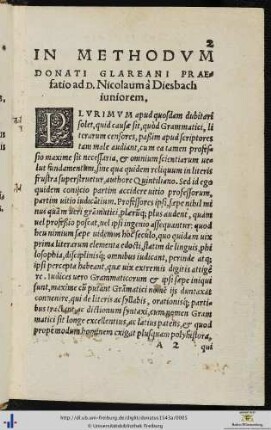 2
IN METHODVM
DONATI GLAREANI PRAE-
fatio ad D. Nicolaum à Diesbach
iuniorem.
PLVRIMVM apud quosdam dubitari
solet, quid causæ sit, quòd Grammatici, li
terarum censores, passim apud scriptores
tam male audiant, cum ea tamen profes-
sio maxime sit necessaria, & omnium scientiarum uelut
fundamentum, sine qua quidem reliquum in literis
frustra superstruitur, authore Quintiliano. Sed id ego
quidem conijcio partim accidere uitio professorum,
partim uitio iudicãtium. Professores ipsi, sæpe nihil mi
nus quàm ueri grãmatici, plerũq; plus audent, quàm
uel professio poscat, uel ipsi ingenio assequantur: quod
heu nimium sæpe uidemus hoc seculo, quo quidam uix
prima literarum elementa edocti, statim de linguis, phi
losophia, disciplinisq; omnibus iudicant, perinde atq;
ipsi percepta habeant, quæ uix extremis digitis attigê
re. Iudices uero Grammaticorum & ipsi sæpe iniqui
sunt, maxime cũ putant Grãmatici nomē ijs duntaxat
conuenire, qui de literis ac syllabis, orationisq; parti
bus tractant, ac dictionum syntaxi, cum nomen Gram
matici sit longe excellentius, ac latius patens, & quod
propemodum hominem exigat plusquam polyhistora,
A 2 qui
http://dl.ub.uni-freiburg.de/diglit/donatus1543a/0005
© Universitätsbibliothek Freiburg